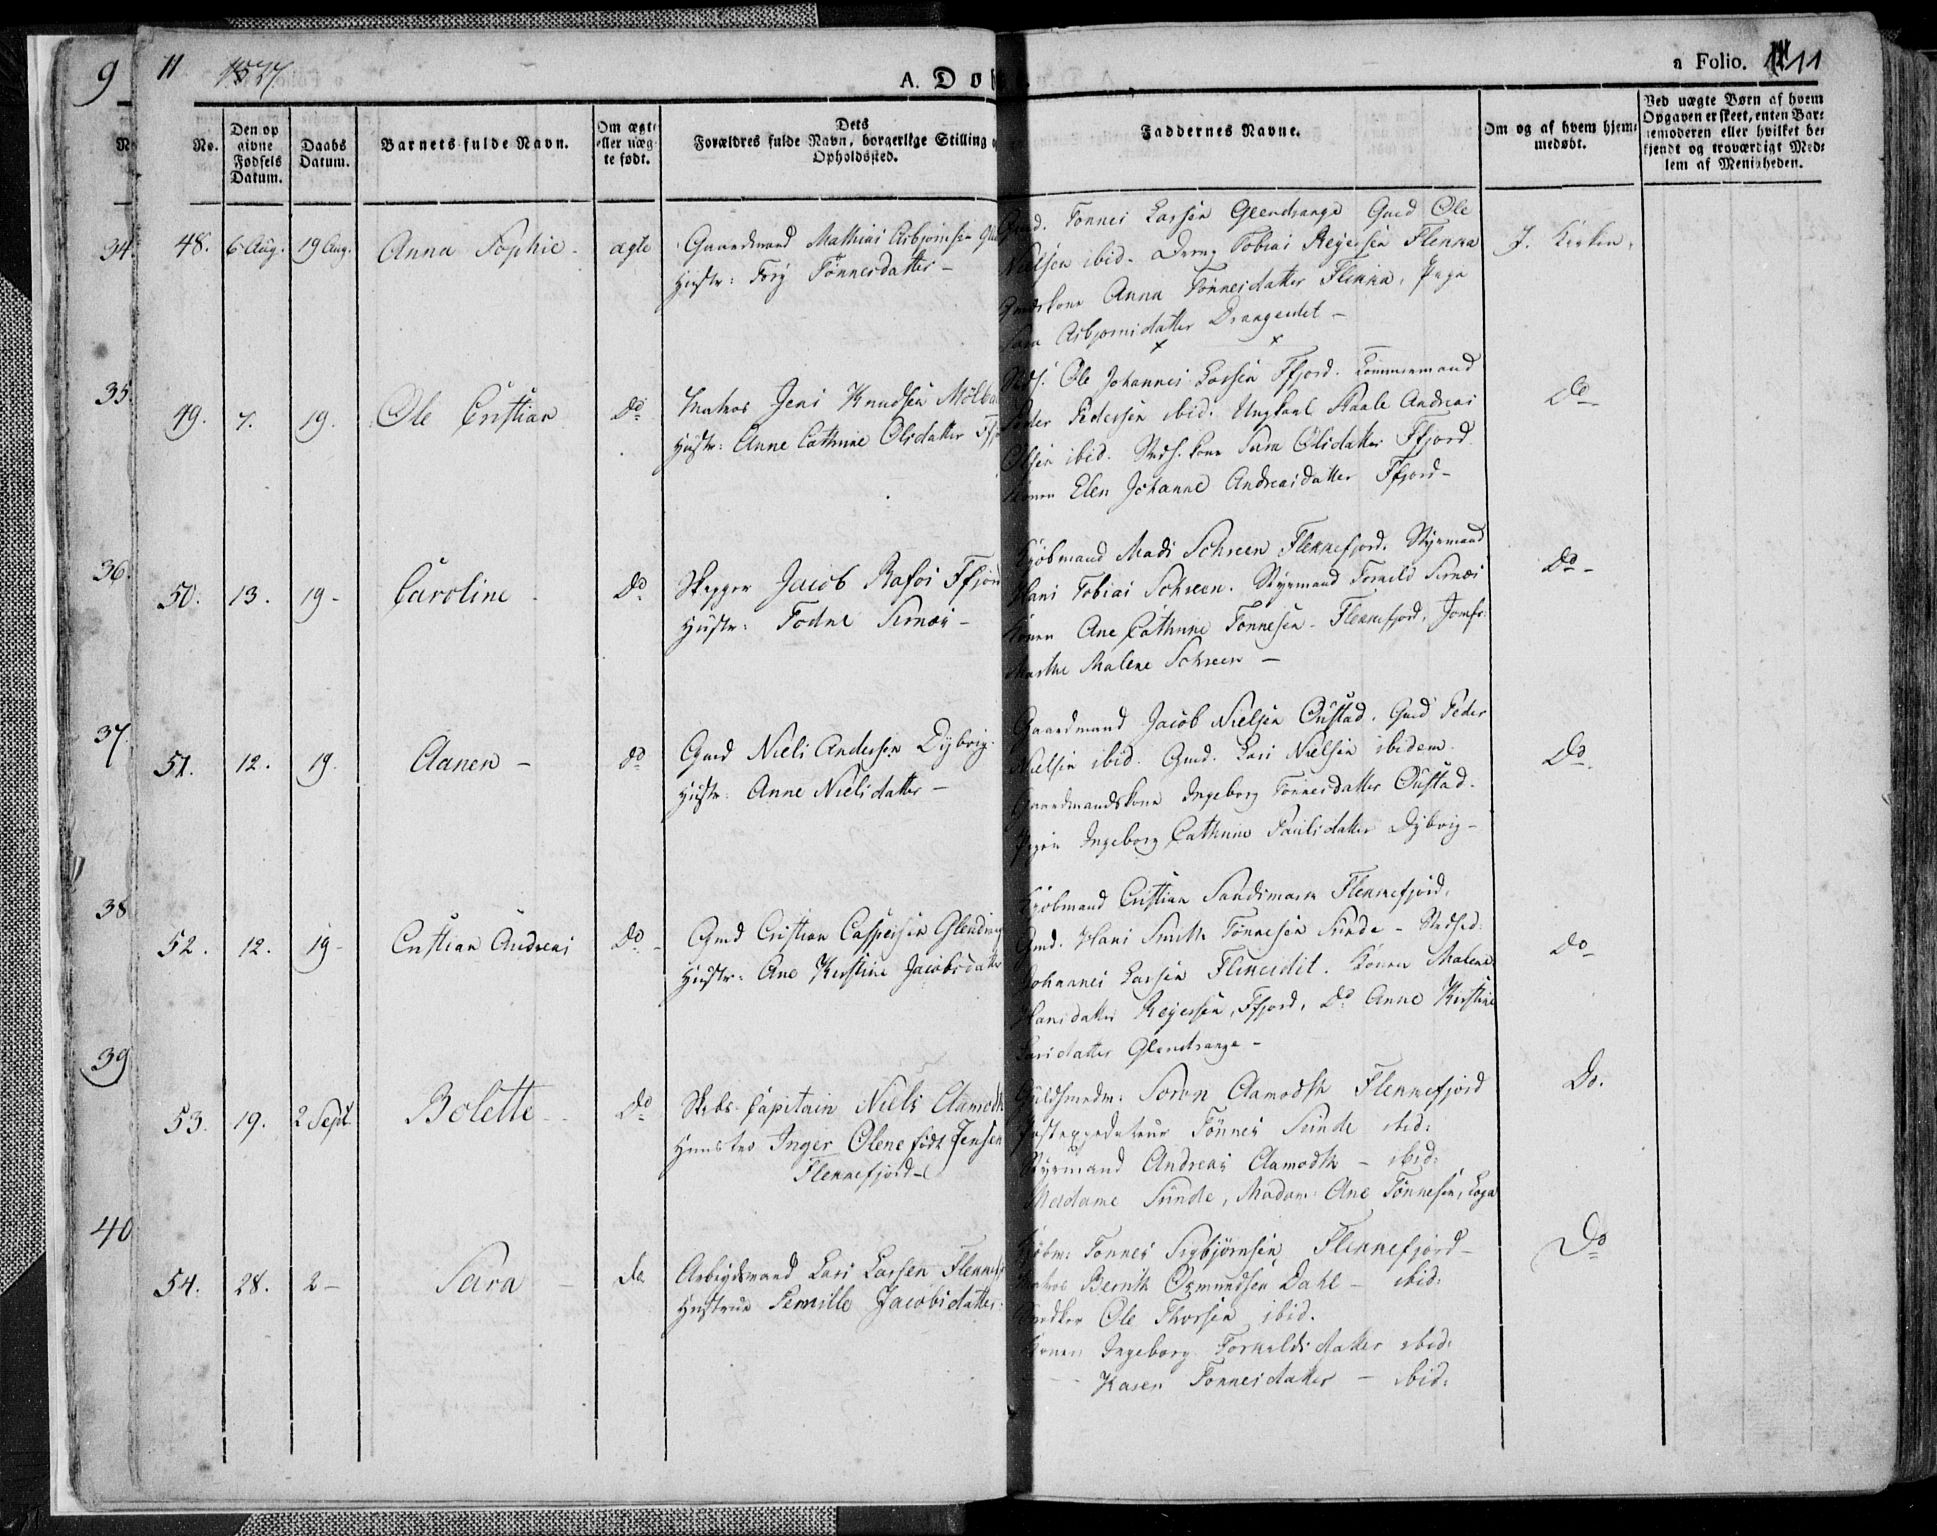 9
34.
35.
36.
37
38
39
40
11
1827.
A. Do
a Folio. 11
No.
Den op
givne
Fødsels
Datum.
Daabs
Datum.
Barnets fulde Navn.
Om ægte
eller uæg
te født.
Dets
Forældres fulde Navn, borgerlige Stilling o
Opholdssted.
Faddernes Navne.
Om og af hvem hjem-
medøbt.
Ved uægte Børn af hvem
Opgaven er skeet, enten Bar-
nemoderen eller hvilket be-
kjendt og troværdigt Med-
lem af Menigheden.
48. 6 Aug. 19 Aug. Anna Sophie - ægte
Gaardmand Mathias Asbjørnsen
Hustr: Tonnesdatter -
Tonnes Larsen Glendrange Gmd Ole
Nielsen ibid. Dreng Tobias Reyersen Flenna
Gmdskone Anna Tönnesdatter Flenna, Pige
Asbjørnsdatter Drangeidet -
I. Kirken.
49. 7. 19. Ole Cristian Do
Matros Jens Knudsen
Hustr: Anne Cathrine Olsdatter
Ole Johannes Larsen Ffjord. Tömmermand
Peder Pedersen ibid. Ungkarl Staale Andreas
Olsen ibid. Kone Sara Olsdatter Ffjord
Konen Elen Johanne Andreasdatter Ffjord -
Do -
50. 13. 19 - Caroline - Do
Skipper Jacob Rafos Ffjord
Hustr: Todne Sirnæs -
Kjöbmand Mads Schreen Flekkefjord. Styrmand
Hans Tobias Schreen. Styrmand Torkild Sirnæs
Konen Ane Cathrine Tonnesen - Flekkefjord, Jomfr:
Marthe Malene Schreen -
Do -
51. 12. 19. Aanen - do
Gmd Niels Andersen Dybvig.
Hustr. Anne Nielsdatter -
Gaardmand Jacob Nielsen Oustad. Gmd Peder
Nielsen ibid. Gmd. Lars Nielsen ibidem.
Gaardmandskone Ingeborg Tonnesdatter Oustad.
Pigen Ingeborg Cathrine Paulsdatter Dybvig -
Do.
52. 12. 19 - Cristian Andreas Do -
Gmd Cristian Caspersen
Hustr: Ane Kirstine Jacobsdatter
Kjöbmand Cristian Sandsmark Flekkefjord.
Gmd. Hans Smith Tonnesen Sunde -
Johannes Larsen. Konen Malene
Hansdatter Reyersen, Ffjord, Do Anne Kirstine
Larsdatter Glendrange -
Do -
53. 19. 2 Sept. Bolette - Do
Skibs-Capitain Niels Aamodt
Hustru Inger Olene født Jensen
Flekkefjord -
Guldsmedm: Soren Aamodth Flekkefjord
Postexpediteur Tönnes Sunde ibid:
Styrmand Andreas Aamodth - ibid:
Madame Sunde, Madam Ane Tönnesen, Loga
Do.
54. 28. 2 - Sara - do
Arbeidsmand Lars Larsen
Hustrue Pernille Jacobsdatter
Kjöbm: Tonnes Sigbjørnsen Flekkefjord -
Bernth Osmundsen Dahl - ibid:
Ole Thorsen ibid.
Konen Ingeborg Torkeldsdatter ibid:
Karen Tonnesdatter - ibid:
Do